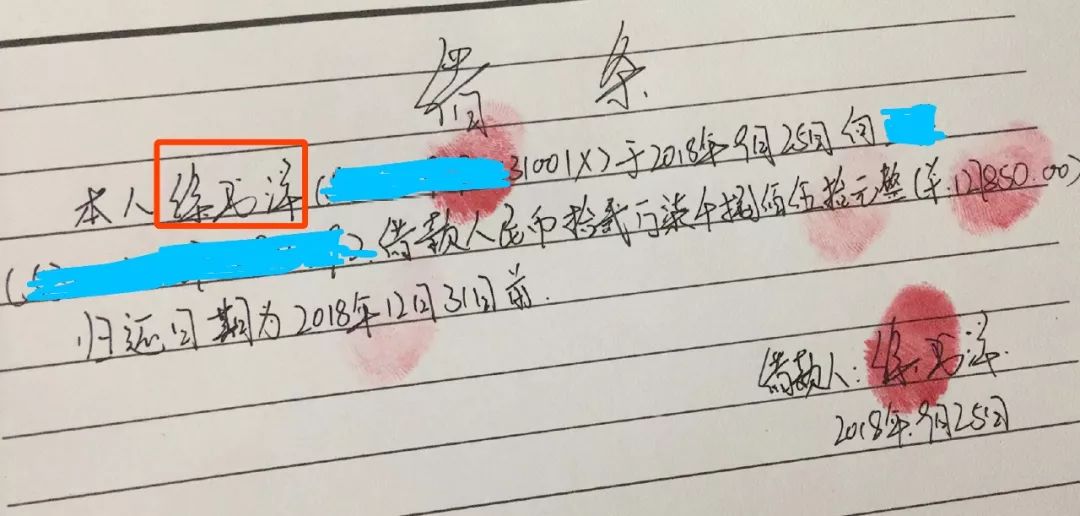 借条
本人徐马洋(31001X)于2018年9月25日向
借款人民币拾贰万柒千捌佰伍拾元整(¥.127850.00)
归还日期为2018年12月31日前.
借款人:徐马洋.
2018年.9月25日